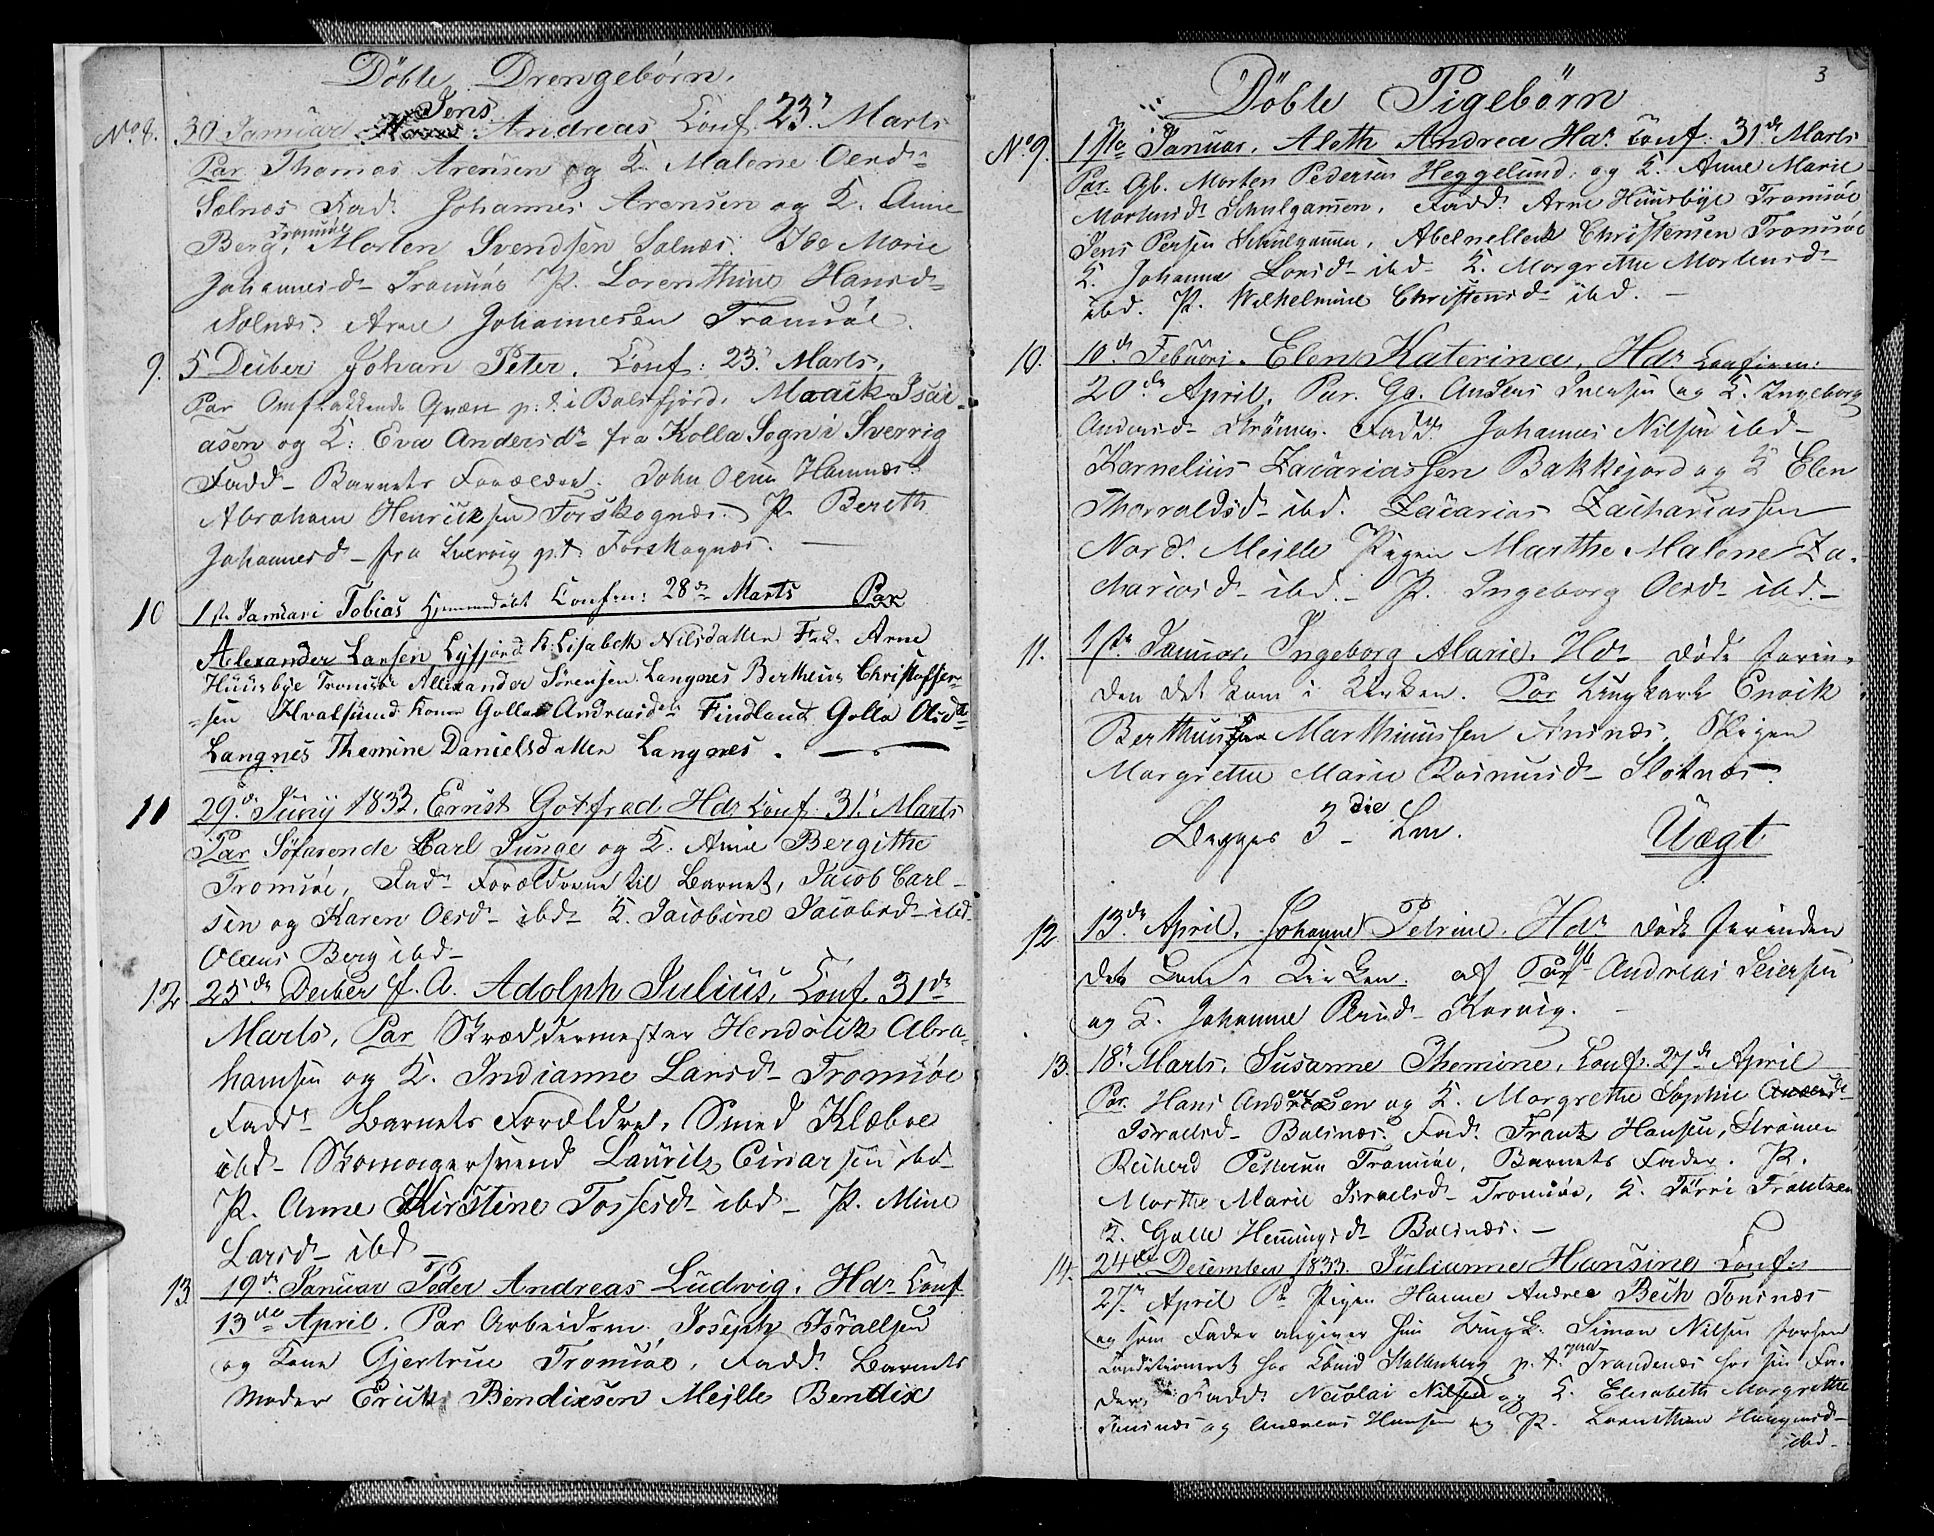 Döbte Drengebørn.
No 8. 30 Januar Jens Andreas Conf. 23' Marts
Par Thomas Arensen og K. Malene Olsd-
Solnæs Fad. Johannes Arensen og K. Anne
Berg, Tromsøe Morten Svendsen Solnæs. Ida Marie
Johannesd- Tromsøe P. Lorenthine Hansd-
Solnæs. Arne Johannesen Tromsöe.
9. 5 Decber Johan Peter. Conf: 23' Marts.
Par Omflakkende Qvæn p: t: i Balsfjord. Isai-
asen og K: Eva Andersd- fra Kolla Sogn i Sverrig
Fadd- Barnets Forældre. John Olsen Hamnæs.
Abraham Henriksen Forskognæs. P. Bereth
Johannesd- fra Sverrig p.t. Forskognæs.
10 1ste Januari Tobias Hjemmedøbt Confir: 28de Marts Par
Alexander Larsen Lyfjord K. Lisabeth Nilsdatter Fad. Arne
Huusbye Tromsöe Allexander Sörensen Langnes Bertheus Christoffer-
-sen Hvalsund Kone Golla Andreasd- Findland Golla Olsdtr
Langnes Themine Danielsdatter Langnes.
11 29de Junij 1833. Ernst Gotfred Hdr Conf. 31' Marts
Par Søfarende Carl Junge og K. Anne Bergithe
Tromsöe, Fad- Forældrene til Barnet, Jacob Carl-
sen og Karen Olsd- ibd- K. Jacobine Jacobsd- ibd-
Olaus Berg ibd-
12 25de Decber f. A. Adolph Julius, Conf. 31de
Marts, Par Skræddermester Hendrik Abra-
hamsen og K. Indianne Larsd- Tromsöe
Fadr Barnets Forældre, Smed Klæboe
ibd- Skomagersvend Lauritz Einarsen ibd-
P. Anne Kirstine Tossesd- ibd- P. Mine
Larsd- ibd-
13 19de Januar Peder Andreas Ludvig, Hdr Conf
13de April. Par Arbeidsm. Joseph Israelsen
og Kone Gjertrue Tromsøe, Fadd. Barnets
Moder Erick Bendixsen Mejlle Bendix
3
Döbte Pigebörn
No 9. 1ste Januar, Aleth Andrea Hdr Conf. 31de Marts
Par. Gb. Morten Pedersen Heggelund, og K. Anne Marie
Mortensd- Schulgammen, Fadd. Arne Huusbye Tromsøe
Jens Persen Schulgammen, Christensen Tromsøe
K. Johanna Larsd- ibd- K. Margrethe Mortensd-
ibd. P. Wilhelmine Christensd- ibd.
10. 10de Febuari. Elen Katerina, Hdr Confirm:
20de April, Par. Gb. Anders Iversen og K. Ingeborg
Andersd- Strømen. Fadd. Johannes Nilsen ibd-
Kornelius Zacariassen Bakkejord og K Elen
Thorvaldsd- ibd. Zacarias Zachariassen
Nord. Mejlle Pigen Marthe Malene Za-
chariasd- ibd.- P. Ingeborg Olsd- ibd.-
11. 1ste Januar, Ingeborg Marie. Hdr døde forin-
den det kom i Kirken. Par Ungkarl Enoik
Berthuus Marthinussen Ansnæs, Pigen
Margrethe Marie Rasmusd- Slotnæs.
Begges 3die Lm. Uægt
12 13de April. Johanne Petrine. Hdr døde forinden
det kom i Kirken. af Par Gb Andreas Seiersen
og K. Johanne Persd- Korvig.
13 18' Marts, Susanne Themine, Conf. 27de April
Par. Hans Andreasen og K. Margrethe Sophie
Israelsd- Balsnæs. Fad. Frantz Hansen, Strømen
Reiherd Pettersen Tromsøe, Barnets Fader. P.
Marthe Marie Israelsd- Tromsøe, K. Frantzen
K. Golle Hemmingsd- Balsnæs.
14. 24de December 1833. Julianne Hansine Conf.
27de April Pigen Hanne Andrea Bech Tønsnæs
og som Fader angiver hun Ungk. Simon Nilsen forhen
Conditioneret hos p. t. Trandenæs hos sin Fa-
der, Fadd. Nicolai Nilsen og K. Elisabeth Margrethe
Tønsnæs og Andreas Hansen og P.
ibd-